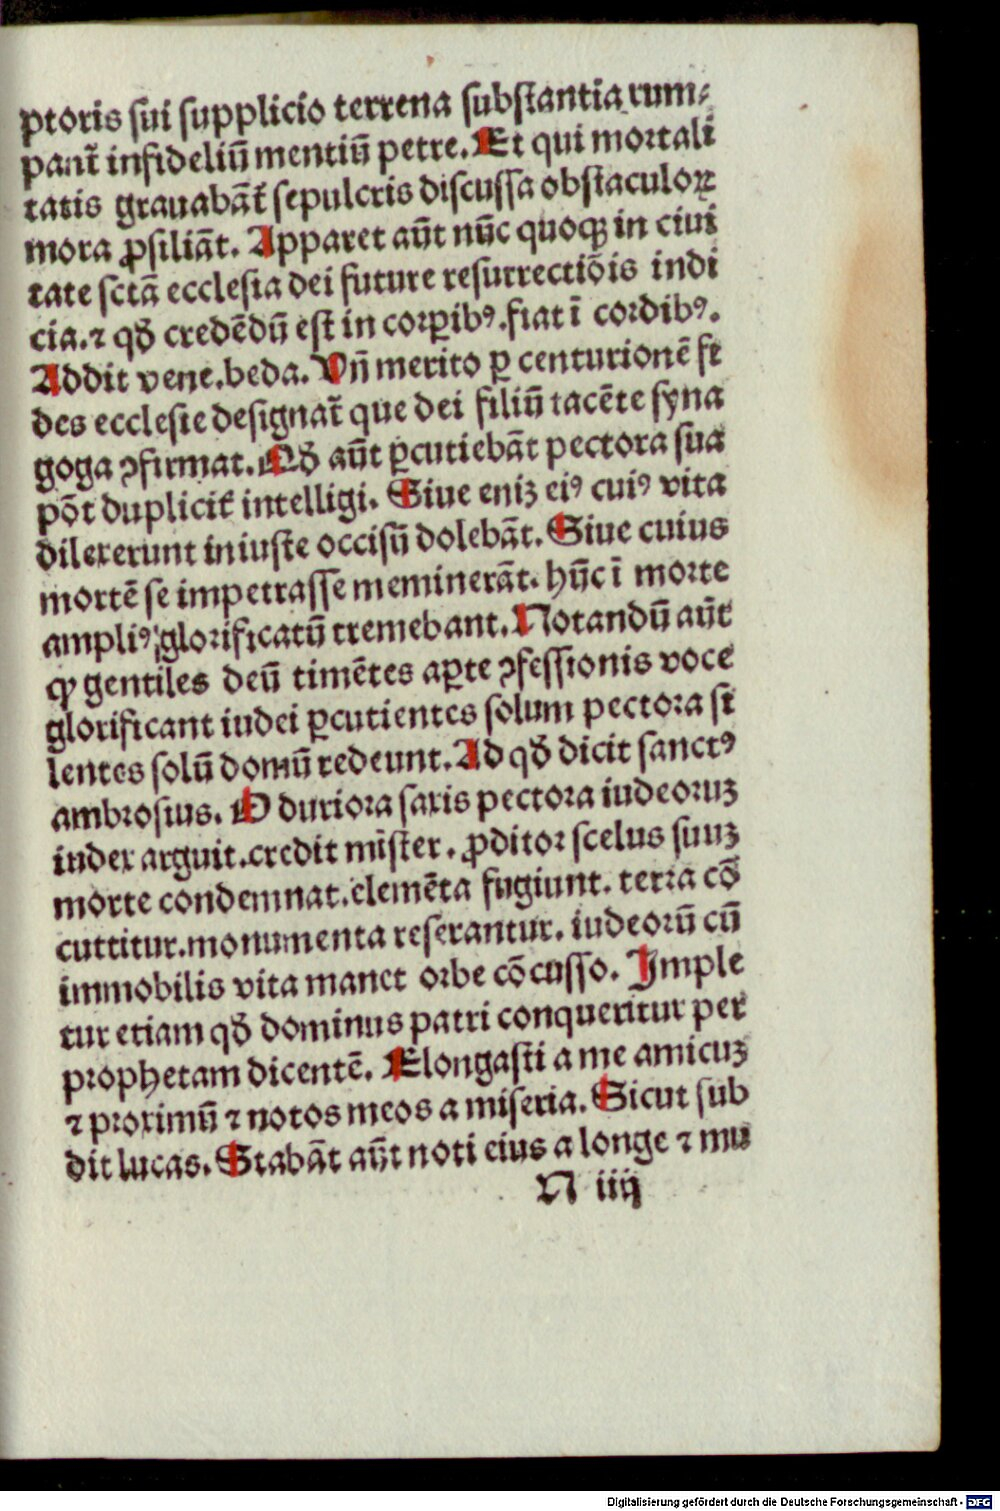 ptoris sui supplicio terrena substantia rum⸗
pant̄ infideliū mentiū petre. Et qui mortali
tatis grauabāt̄ sepulcris discussa obstaculoꝝ
mora ꝓsiliāt. Apparet aūt nūc quoqꝫ in ciui
tate sctā ecclesia dei future resurrectiōis indi
cia. ⁊ qđ credēdū est in corꝑibꝰ. fiat ī cordibꝰ.
Addit vene. beda. Vn̄ merito ꝑ centurionē fi
des ecclesie designat̄ que dei filiū tacēte syna
goga ꝯfirmat. Qđ aūt ꝑcutiebāt pectora sua
pōt duplicit̄ intelligi. Siue eniꝫ eiꝰ cuiꝰ vita
dilexerunt iniuste occisū dolebāt. Siue cuius
mortē se impetrasse meminerāt. hūc ī morte
ampliꝰ glorificatū tremebant. Notandū aūt
ꝙ gentiles deū timētes aꝑte ꝯfessionis voce
glorificant iudei ꝑcutientes solum pectora si
lentes solū domū redeunt. Ad qđ dicit sanctꝰ
ambrosius. O duriora saxis pectora iudeoruꝫ
iudex arguit. credit mīster. ꝓditor scelus suuꝫ
morte condemnat. elemēta fugiunt. terra cō
cuttitur. monumenta reserantur. iudeorū cū
immobilis vita manet orbe cōcusso. Imple
tur etiam qđ dominus patri conqueritur per
prophetam dicentē. Elongasti a me amicuꝫ
⁊ proximū ⁊ notos meos a miseria. Sicut sub
dit lucas. Stabāt aūt noti eius a longe ⁊ mu
N iiij
Digitalisierung gefördert durch die Deutsche Forschungsgemeinschaft - DFG